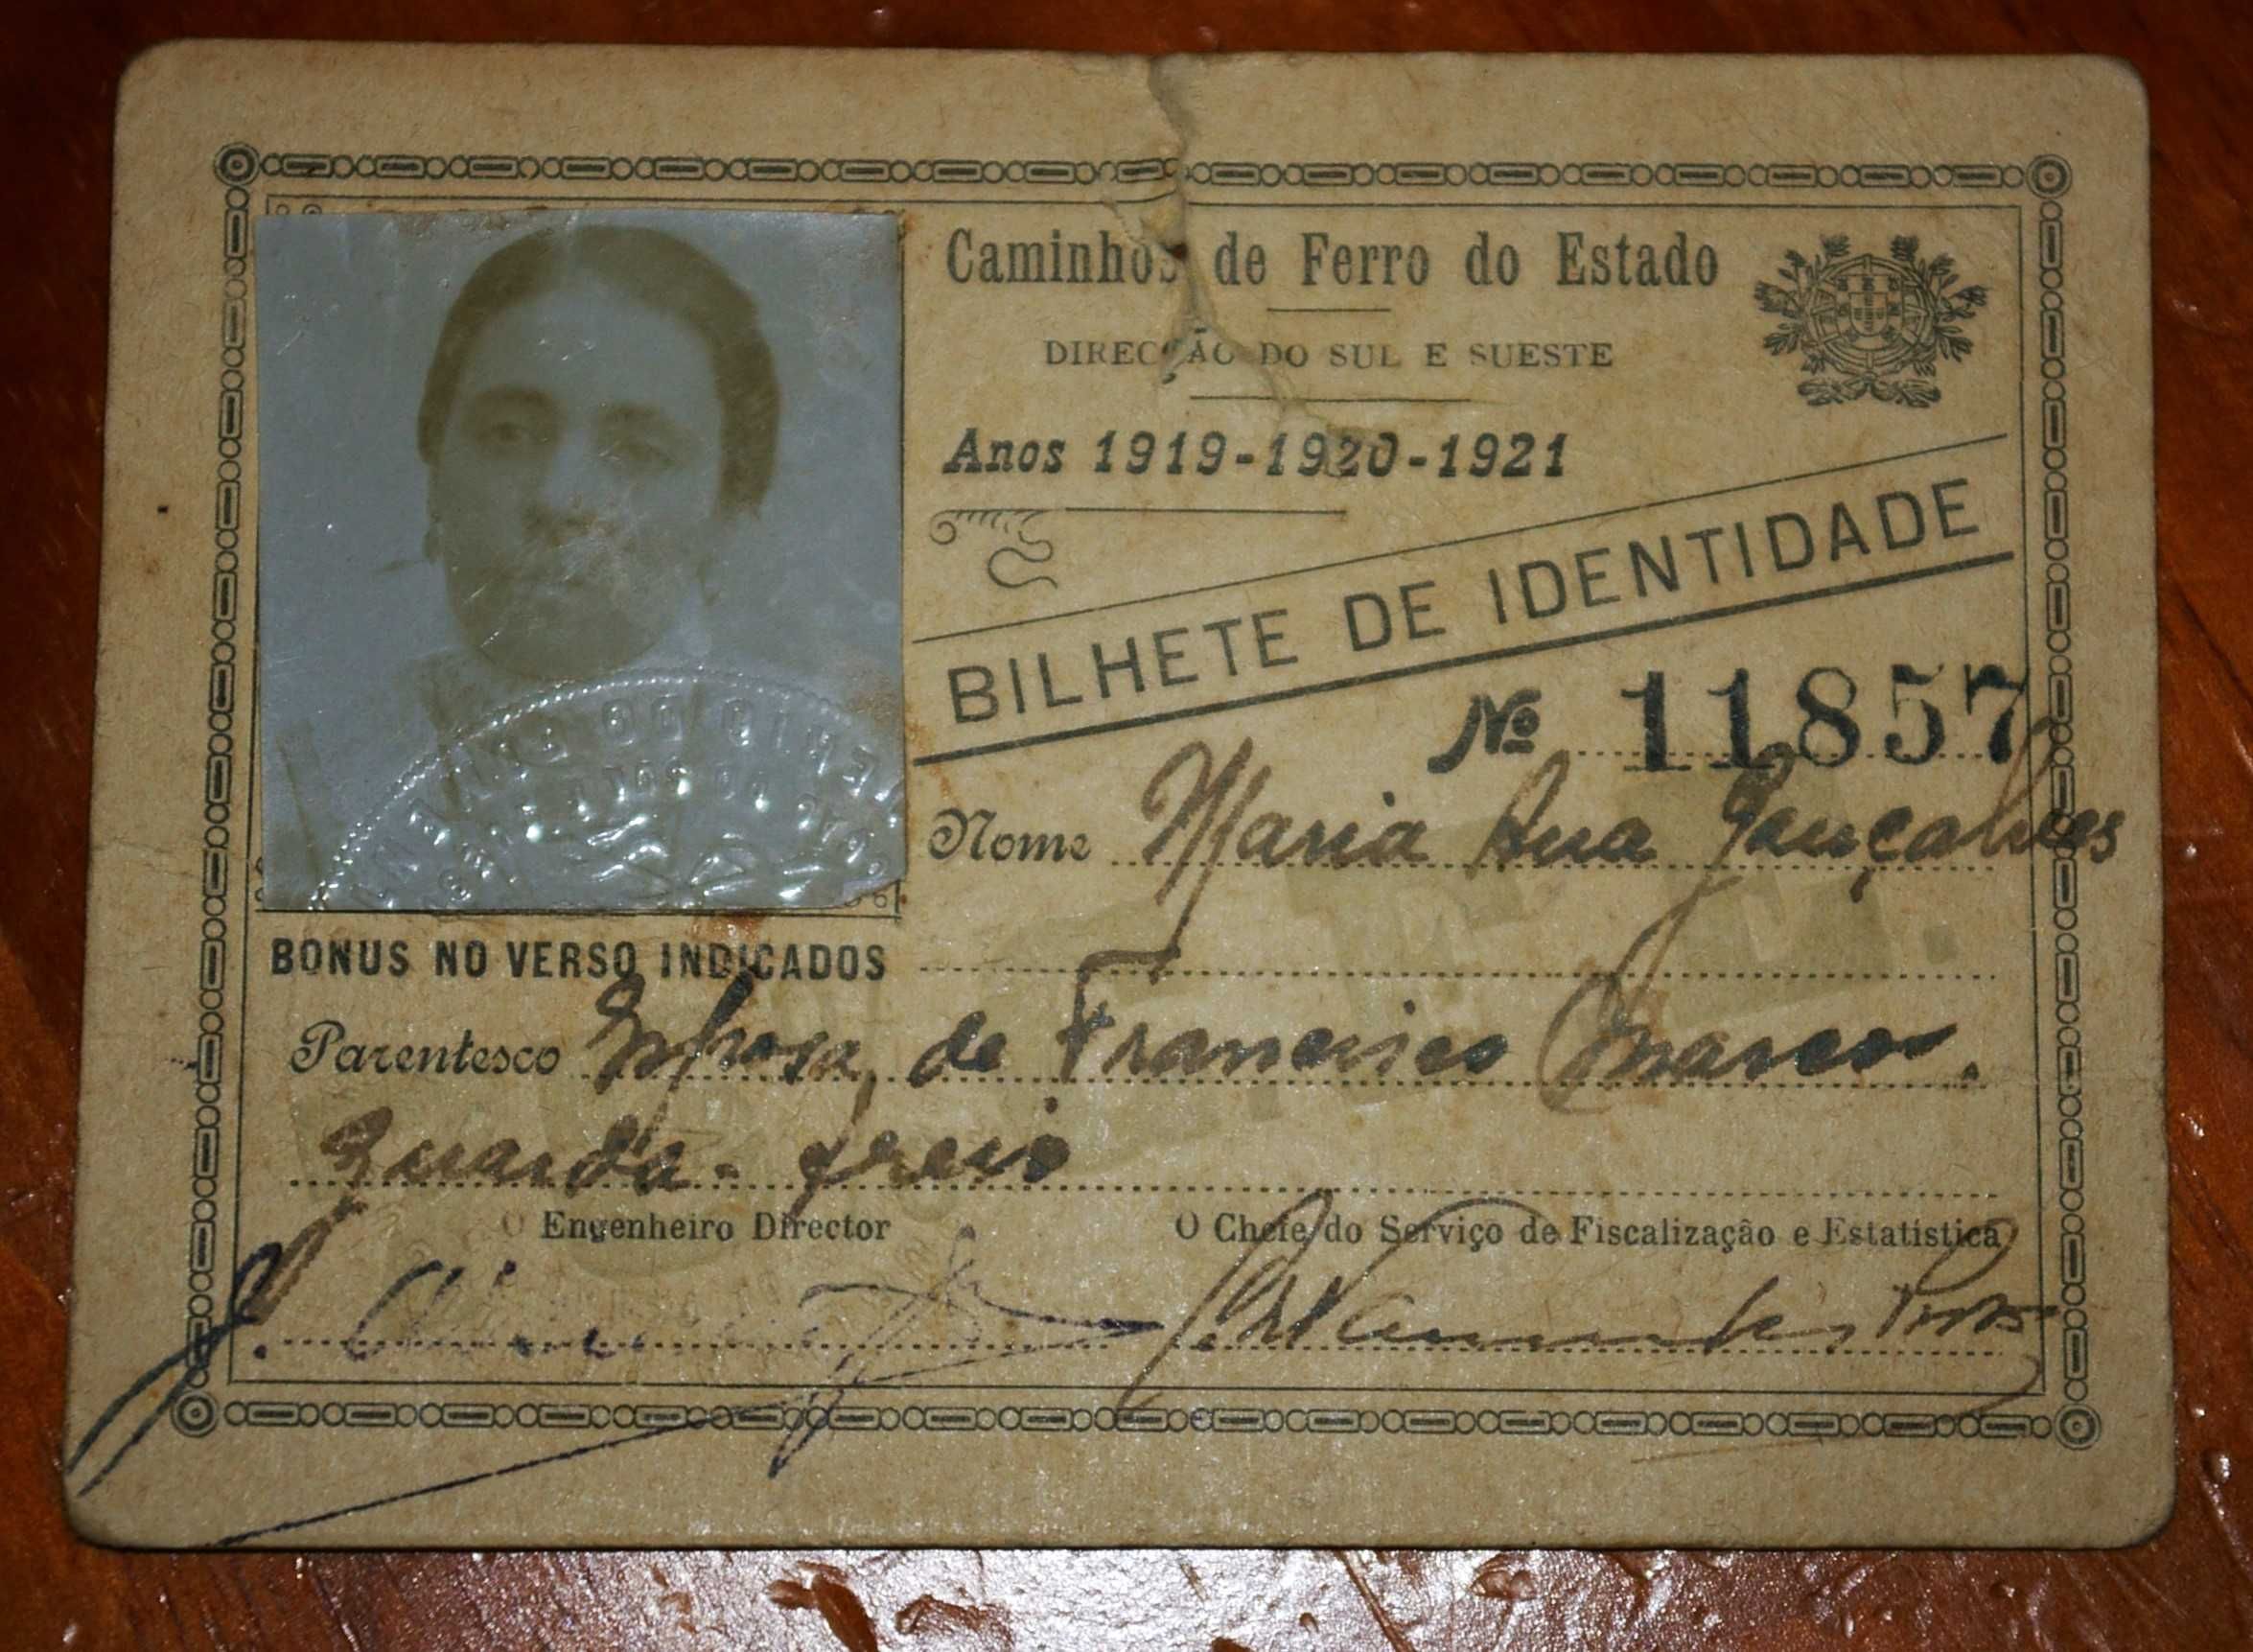 Caminhos de Ferro do Estado
DIRECÇÃO DO SUL E SUESTE
Anos 1919-1920-1921
BILHETE DE IDENTIDADE
Nº 11857
Nome Maria Ana Gonçalves
BONUS NO VERSO INDICADOS
Parentesco Esposa de Francisco Marcos.
Guarda-freio
O Engenheiro Director
O Chefe do Serviço de Fiscalização e Estatística